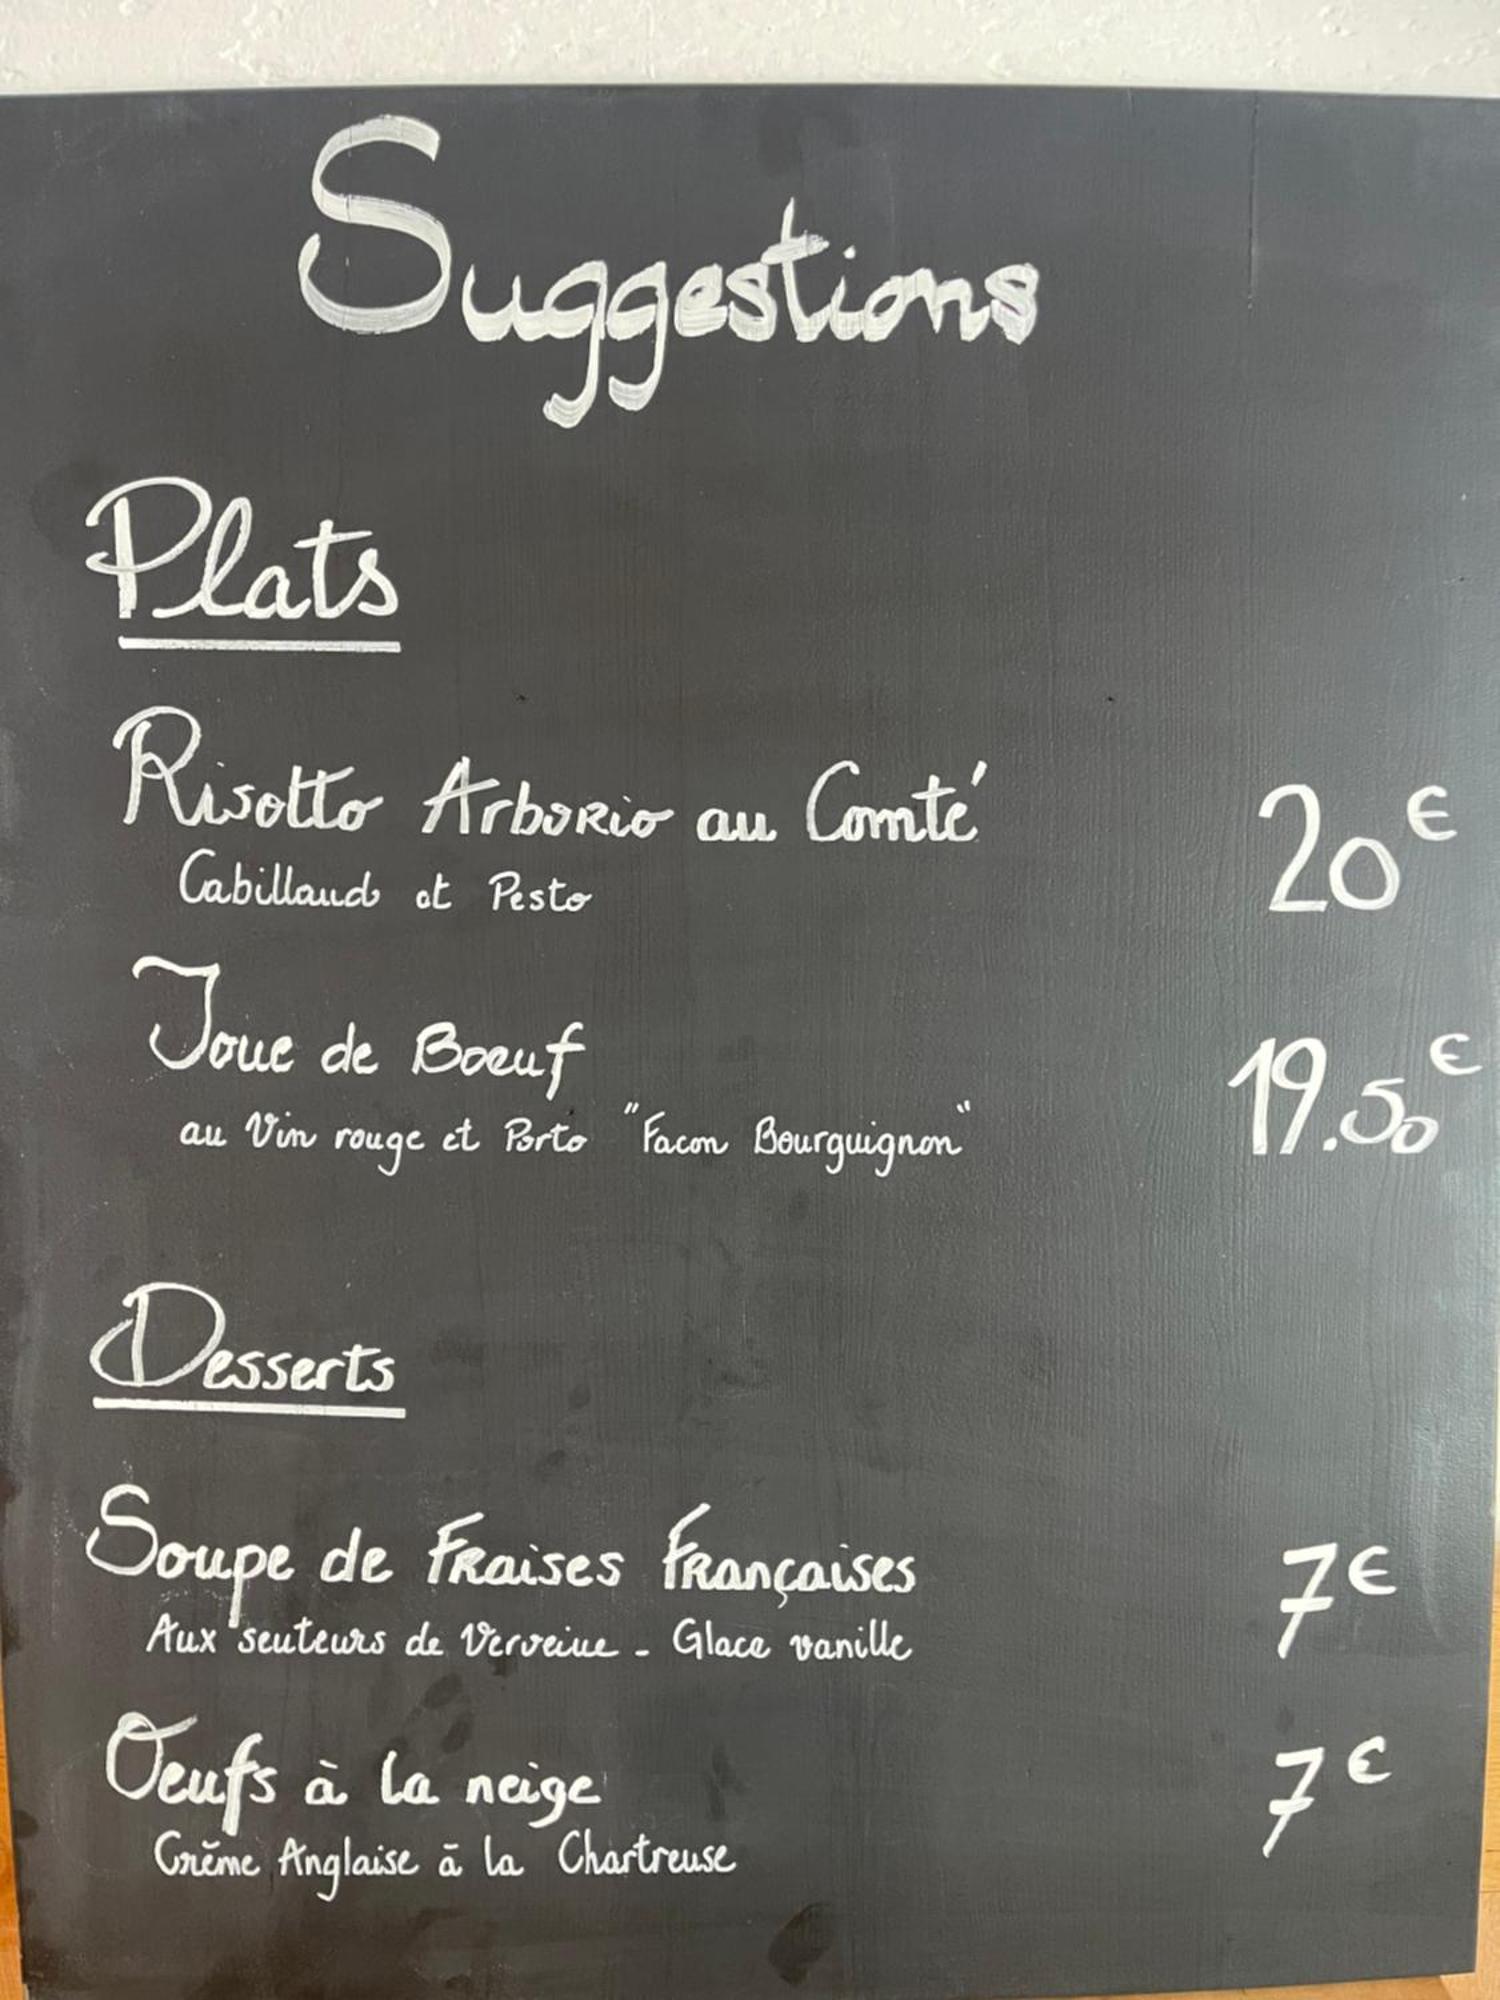 Suggestions
Plats
Risotto Arborio au Comté 20€
Cabillaud et Pesto
Joue de Boeuf 19.50€
au Vin rouge et Porto "Facon Bourguignon"
Desserts
Soupe de Fraises Françaises 7€
Aux senteurs de Verveine - Glace vanille
Oeufs à la neige 7€
Crème Anglaise à la Chartreuse